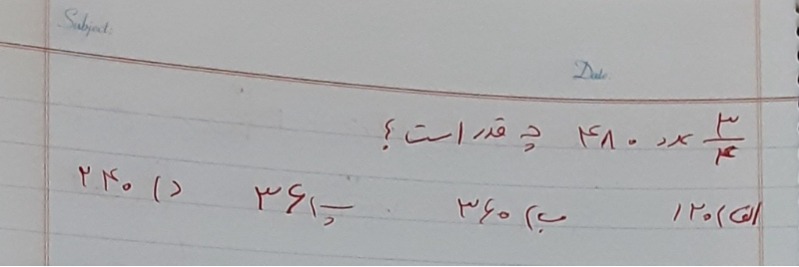 Subject:
Date
۳/۴ عدد ۴۸۰ چه قدر است؟
الف) ۱۲۰ ب) ۳۶۰ پ) ۳۶۱ د) ۲۴۰